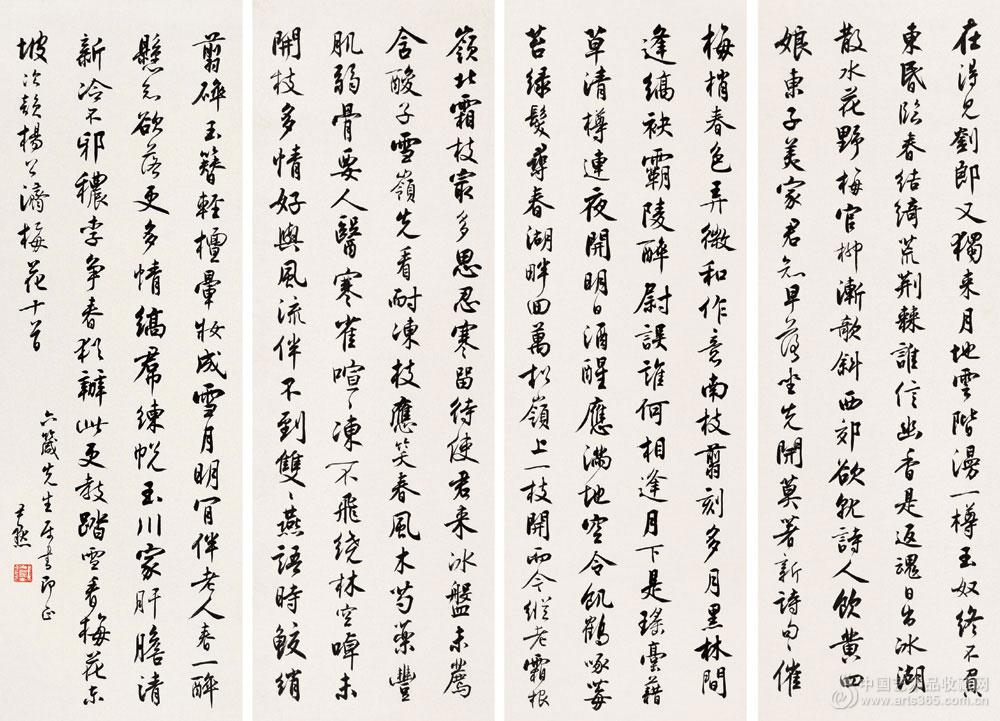 在淂見劉郎又獨来月地雲階漫一樽玉奴終不負
東昏臨春結綺荒荊棘誰信幽香是返魂日出冰湖
散水花野梅官柳漸欹斜西郊欲就詩人飲黄四
娘東子美家君知早落坐先開莫著新詩句〻催
梅梢春色弄微和作意南枝翦刻多月黑林間
逢縞袂霸陵醉尉誤誰何相逢月下是瑤臺藉
草清樽連夜開明日酒醒應滿地空令飢鶴啄莓
苔緑髮尋春湖畔回萬松嶺上一枝開而今縱老霜根
嶺北霜枝最多思忍寒留待使君来冰盤未薦
含酸子雪嶺先看耐凍枝應笑春風木芍藥豐
肌弱骨要人醫寒雀喧〻凍不飛繞林空啅未
開枝多情好與風流伴不到雙〻燕語時鮫綃
翦碎玉簪輕檀暈妝成雪月明肯伴老人春一醉
懸知欲落更多情縞帬練帨玉川家肝膽清
新冷不邪穠李争春猶辦此更教踏雪看梅花東
坡次韻楊公濟梅花十首
六箴先生属書即正
尹默
中国艺术品收藏网
www.arts365.com.cn